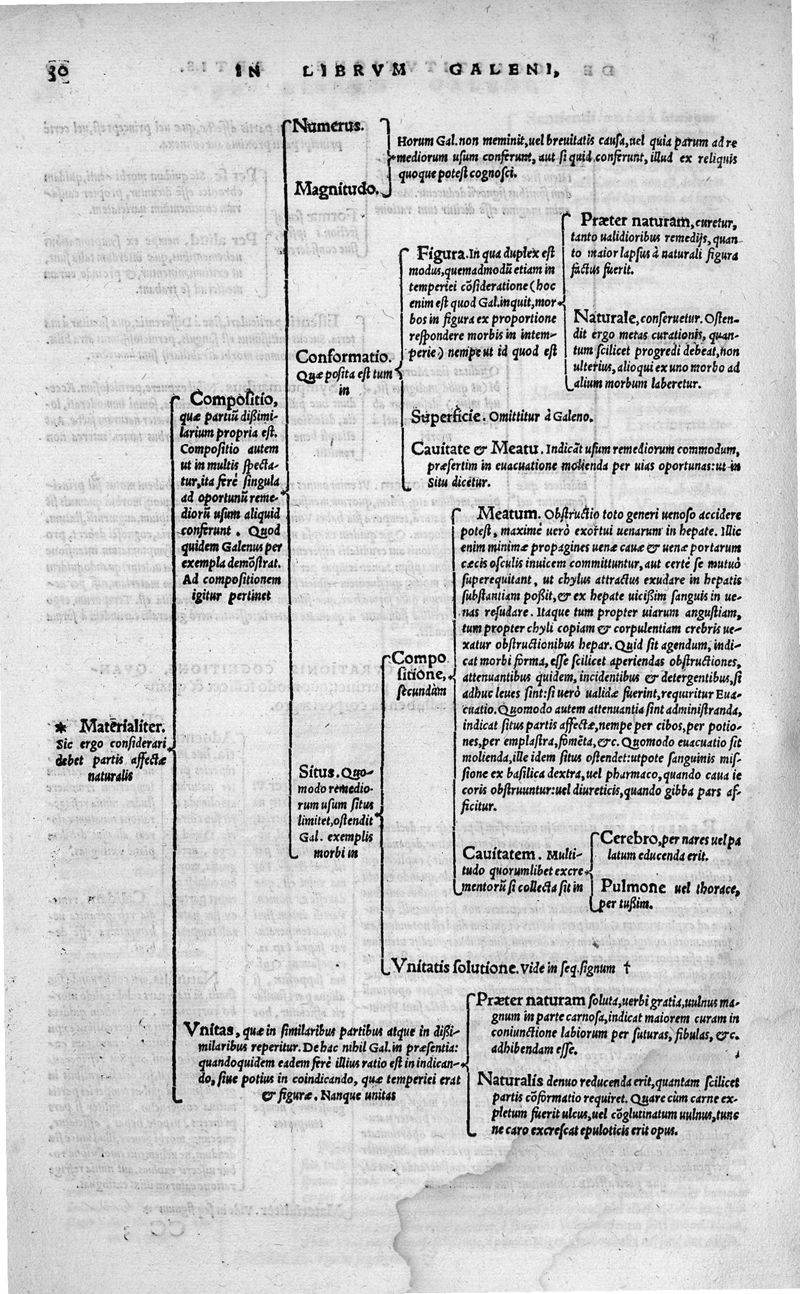 30 IN LIBRVM GALENI,
Numerus.
Magnitudo.
Horum Gal. non meminit, uel breuitatis causa, uel quia parum ad re
mediorum usum conferunt, aut si quid conferunt, illud ex reliquis
quoque potest cognosci.
Præter naturam, curetur,
tanto ualidioribus remedijs, quan-
to maior lapsus à naturali figura
factus fuerit.
Figura. In qua duplex est
modus, quemadmodũ etiam in
temperiei cõsideratione (hoc
enim est quod Gal. inquit, mor-
bos in figura ex proportione
respondere morbis in intem-
perie) nempe ut id quod est
Naturale, conseruetur. Osten-
dit ergo metas curationis, quan-
tum scilicet progredi debeat, non
ulterius, alioqui ex uno morbo ad
alium morbum laberetur.
Conformatio.
Quæ posita est tum
in
Superficie. Omittitur à Galeno.
Cauitate & Meatu. Indicãt usum remediorum commodum,
præsertim in euacuatione molienda per uias oportunas: ut in
Situ dicetur.
Compositio,
quæ partiũ dißimi-
larium propria est.
Compositio autem
ut in multis specta-
tur, ita ferè singula
ad oportunũ reme-
diorũ usum aliquid
conferunt. Quod
quidem Galenus per
exempla demõstrat.
Ad compositionem
igitur pertinet
Meatum. Obstructio toto generi uenoso accidere
potest, maximè uerò exortui uenarum in hepate. Illic
enim minimæ propagines uenæ cauæ & uenæ portarum
cæcis osculis inuicem committuntur, aut certè se mutuò
superequitant, ut chylus attractus exudare in hepatis
substantiam poßit, & ex hepate uicißim sanguis in ue-
nas resudare. Itaque tum propter uiarum angustiam,
tum propter chyli copiam & corpulentiam crebris ue-
xatur obstructionibus hepar. Quid sit agendum, indi-
cat morbi forma, esse scilicet aperiendas obstructiones,
attenuantibus quidem, incidentibus & detergentibus, si
adhuc leues sint: si uerò ualidæ fuerint, requiritur Eua-
cuatio. Quomodo autem attenuantia sint administranda,
indicat situs partis affectæ, nempe per cibos, per potio-
nes, per emplastra, fomẽta, &c. Quomodo euacuatio sit
molienda, ille idem situs ostendet: utpote sanguinis mis-
sione ex basilica dextra, uel pharmaco, quando caua ie
coris obstruuntur: uel diureticis, quando gibba pars af-
ficitur.
Compo
sitione,
secundùm
* Materialiter.
Sic ergo considerari
debet partis affectæ
naturalis
Situs. Quo-
modo remedio-
rum usum situs
limitet, ostendit
Gal. exemplis
morbi in
Cauitatem. Multi-
tudo quorumlibet excre-
mentorũ si collecta sit in
Cerebro, per nares uel pa
latum educenda erit.
Pulmone uel thorace,
per tußim.
Vnitatis solutione. Vide in seq. signum †
Vnitas, quæ in similaribus partibus atque in dißi-
milaribus reperitur. De hac nihil Gal. in præsentia:
quandoquidem eadem ferè illius ratio est in indican-
do, siue potius in coindicando, quæ temperiei erat
& figuræ. Nanque unitas
Præter naturam soluta, uerbi gratia, uulnus ma-
gnum in parte carnosa, indicat maiorem curam in
coniunctione labiorum per suturas, fibulas, &c.
adhibendam esse.
Naturalis denuo reducenda erit, quantam scilicet
partis cõformatio requiret. Quare cùm carne ex-
pletum fuerit ulcus, uel cõglutinatum uulnus, tunc
ne caro excrescat epuloticis erit opus.